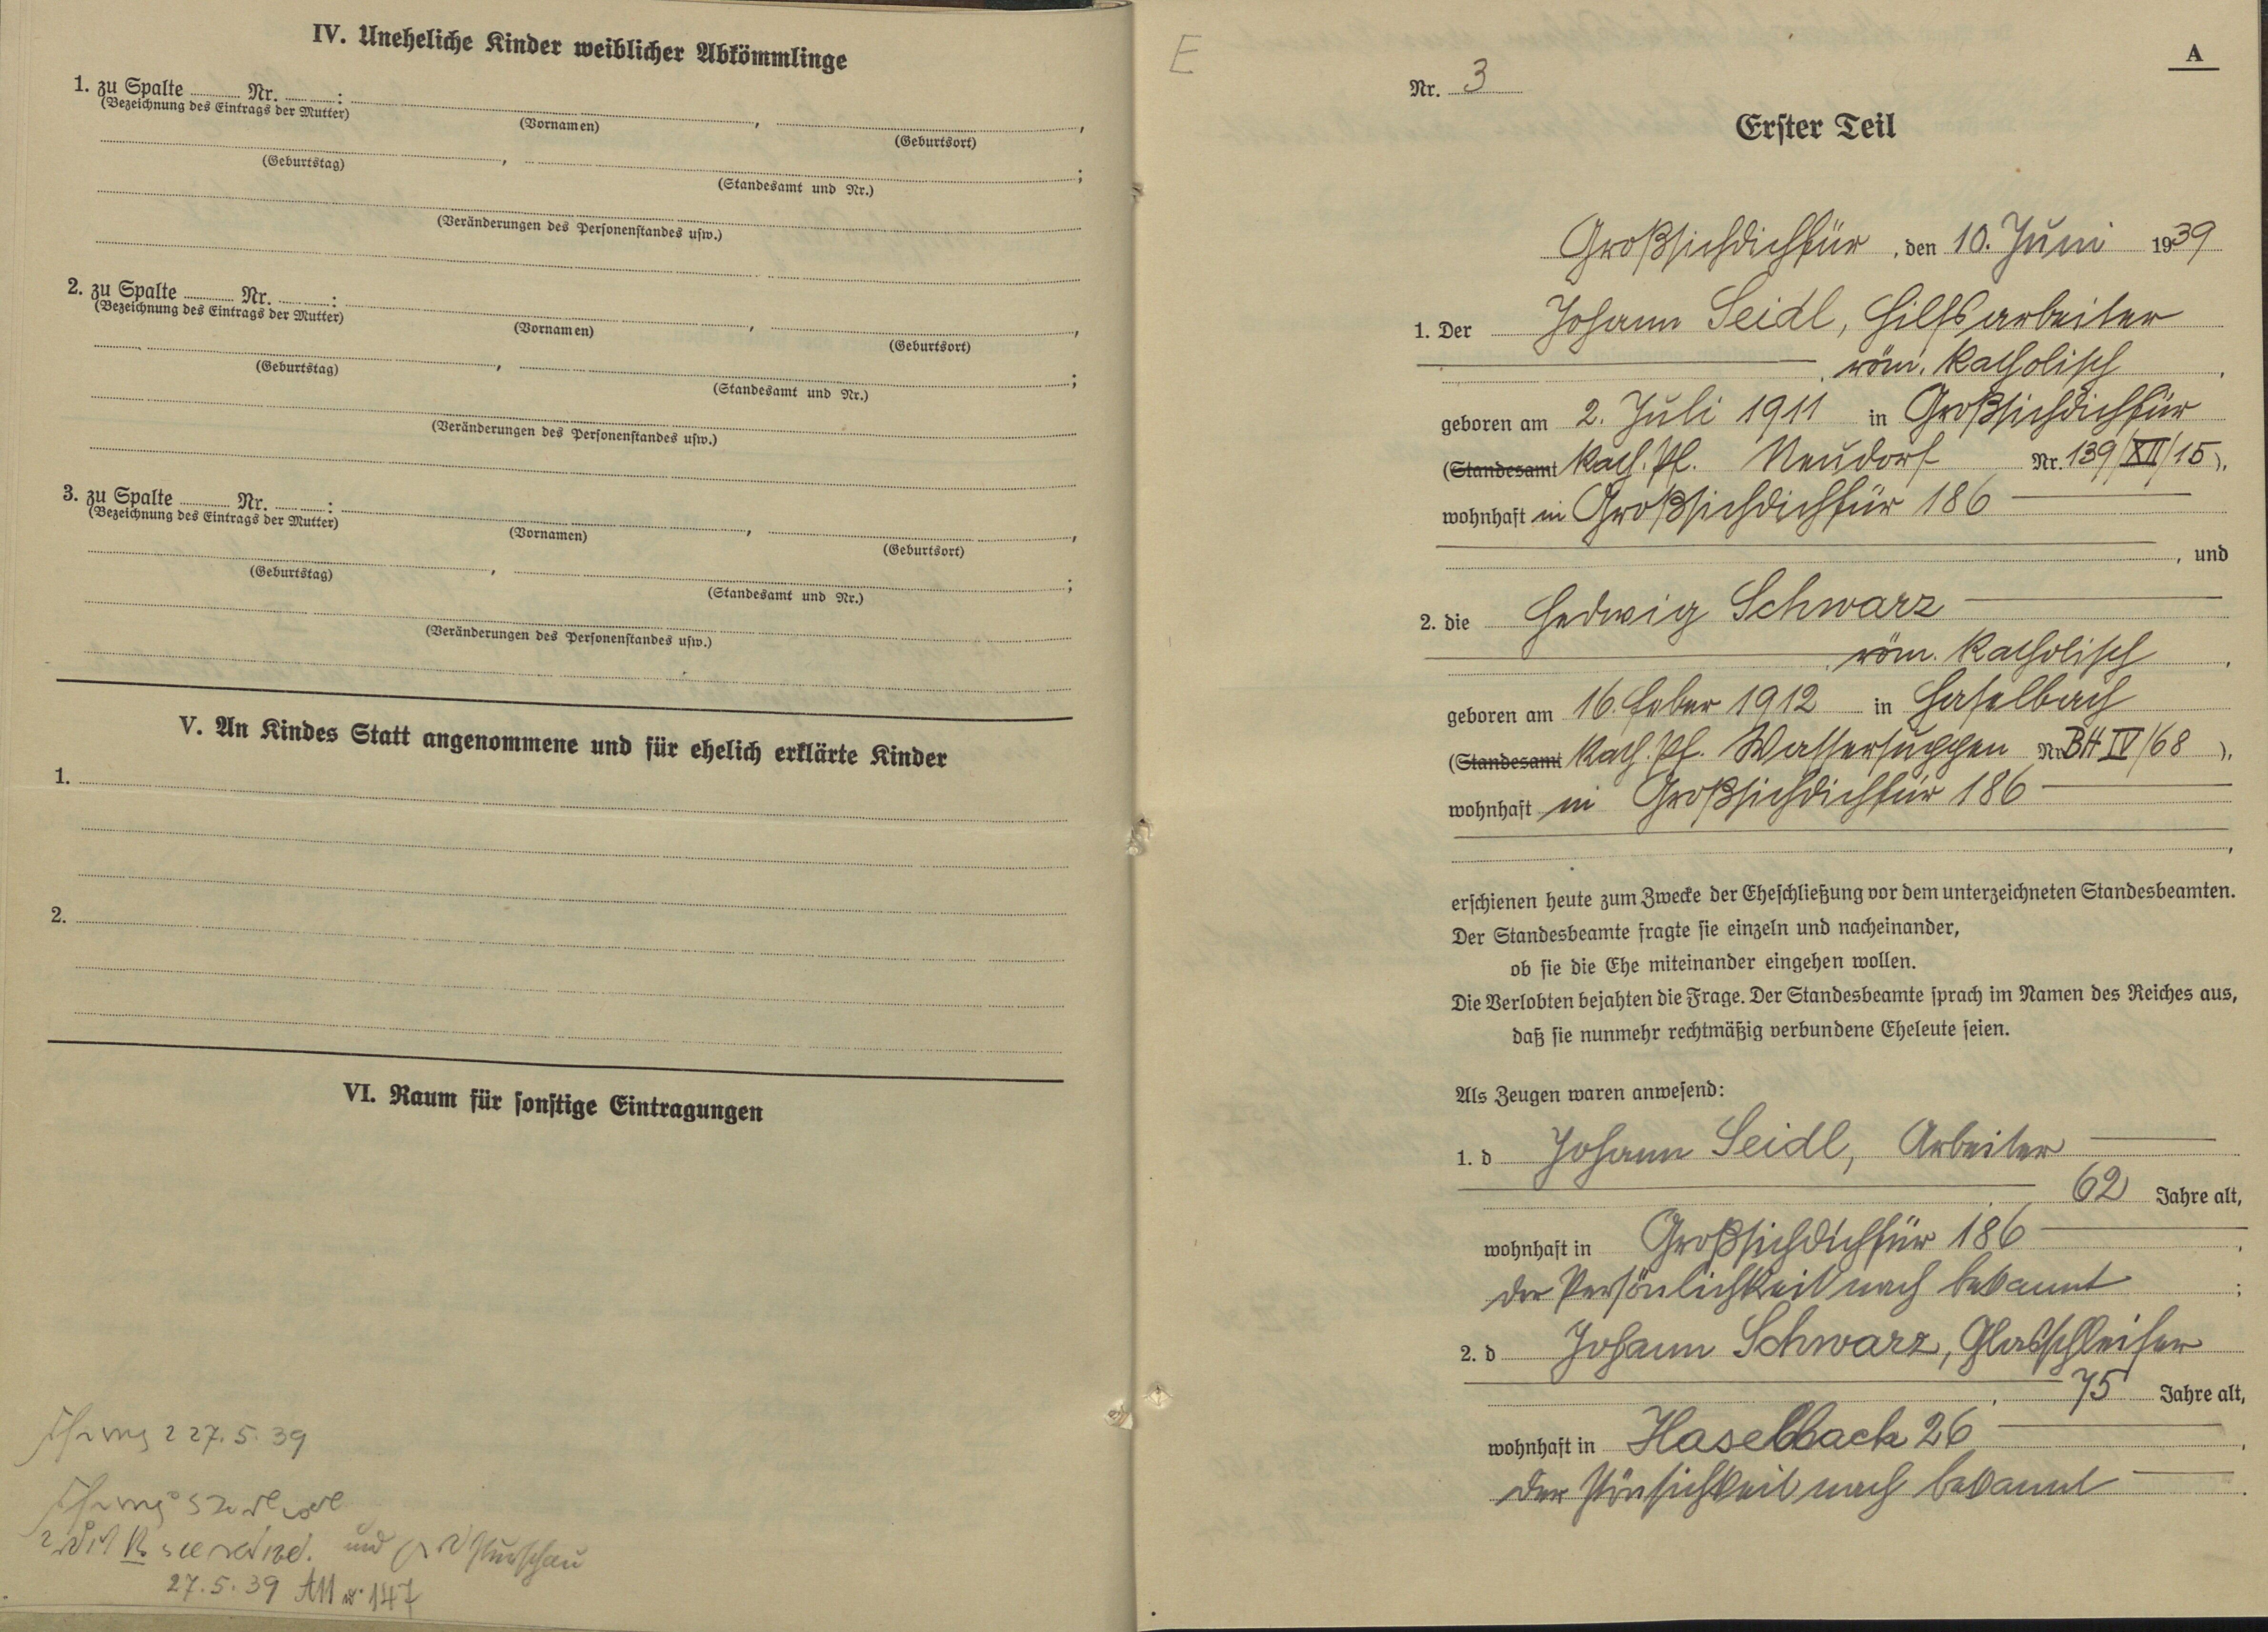 IV. Uneheliche Kinder weiblicher Abkömmlinge
1. zu Spalte ........ Nr. ........:
(Bezeichnung des Eintrags der Mutter)
(Vornamen)
(Geburtsort)
(Geburtstag)
(Standesamt und Nr.)
(Veränderungen des Personenstandes usw.)
2. zu Spalte ........ Nr. ........:
(Bezeichnung des Eintrags der Mutter)
(Vornamen)
(Geburtsort)
(Geburtstag)
(Standesamt und Nr.)
(Veränderungen des Personenstandes usw.)
3. zu Spalte ........ Nr. ........:
(Bezeichnung des Eintrags der Mutter)
(Vornamen)
(Geburtsort)
(Geburtstag)
(Standesamt und Nr.)
(Veränderungen des Personenstandes usw.)
V. An Kindes Statt angenommene und für ehelich erklärte Kinder
1.
2.
VI. Raum für sonstige Eintragungen
27.5.39
und
27.5.39 147
E
A
Nr. 3
Erster Teil
Großsichdichfür, den 10. Juni 1939
1. Der Johann Seidl, Hilfsarbeiter
, röm. katholisch,
geboren am 2. Juli 1911 in Großsichdichfür
(Standesamt Kath. Pf. Neudorf Nr. 139/XII/15),
wohnhaft in Großsichdichfür 186
, und
2. die Hedwig Schwarz
, röm. katholisch,
geboren am 16. Feber 1912 in Haselbach
(Standesamt Kath. Pf. Wassersuppen Nr. BH IV/68),
wohnhaft in Großsichdichfür 186
,
erschienen heute zum Zwecke der Eheschließung vor dem unterzeichneten Standesbeamten.
Der Standesbeamte fragte sie einzeln und nacheinander,
ob sie die Ehe miteinander eingehen wollen.
Die Verlobten bejahten die Frage. Der Standesbeamte sprach im Namen des Reiches aus,
daß sie nunmehr rechtmäßig verbundene Eheleute seien.
Als Zeugen waren anwesend:
1. d Johann Seidl, Arbeiter
, 62 Jahre alt,
wohnhaft in Großsichdichfür 186,
der Persönlichkeit nach bekannt;
2. d Johann Schwarz, Glasschleifer
, 75 Jahre alt,
wohnhaft in Haselbach 26,
der nach bekannt.